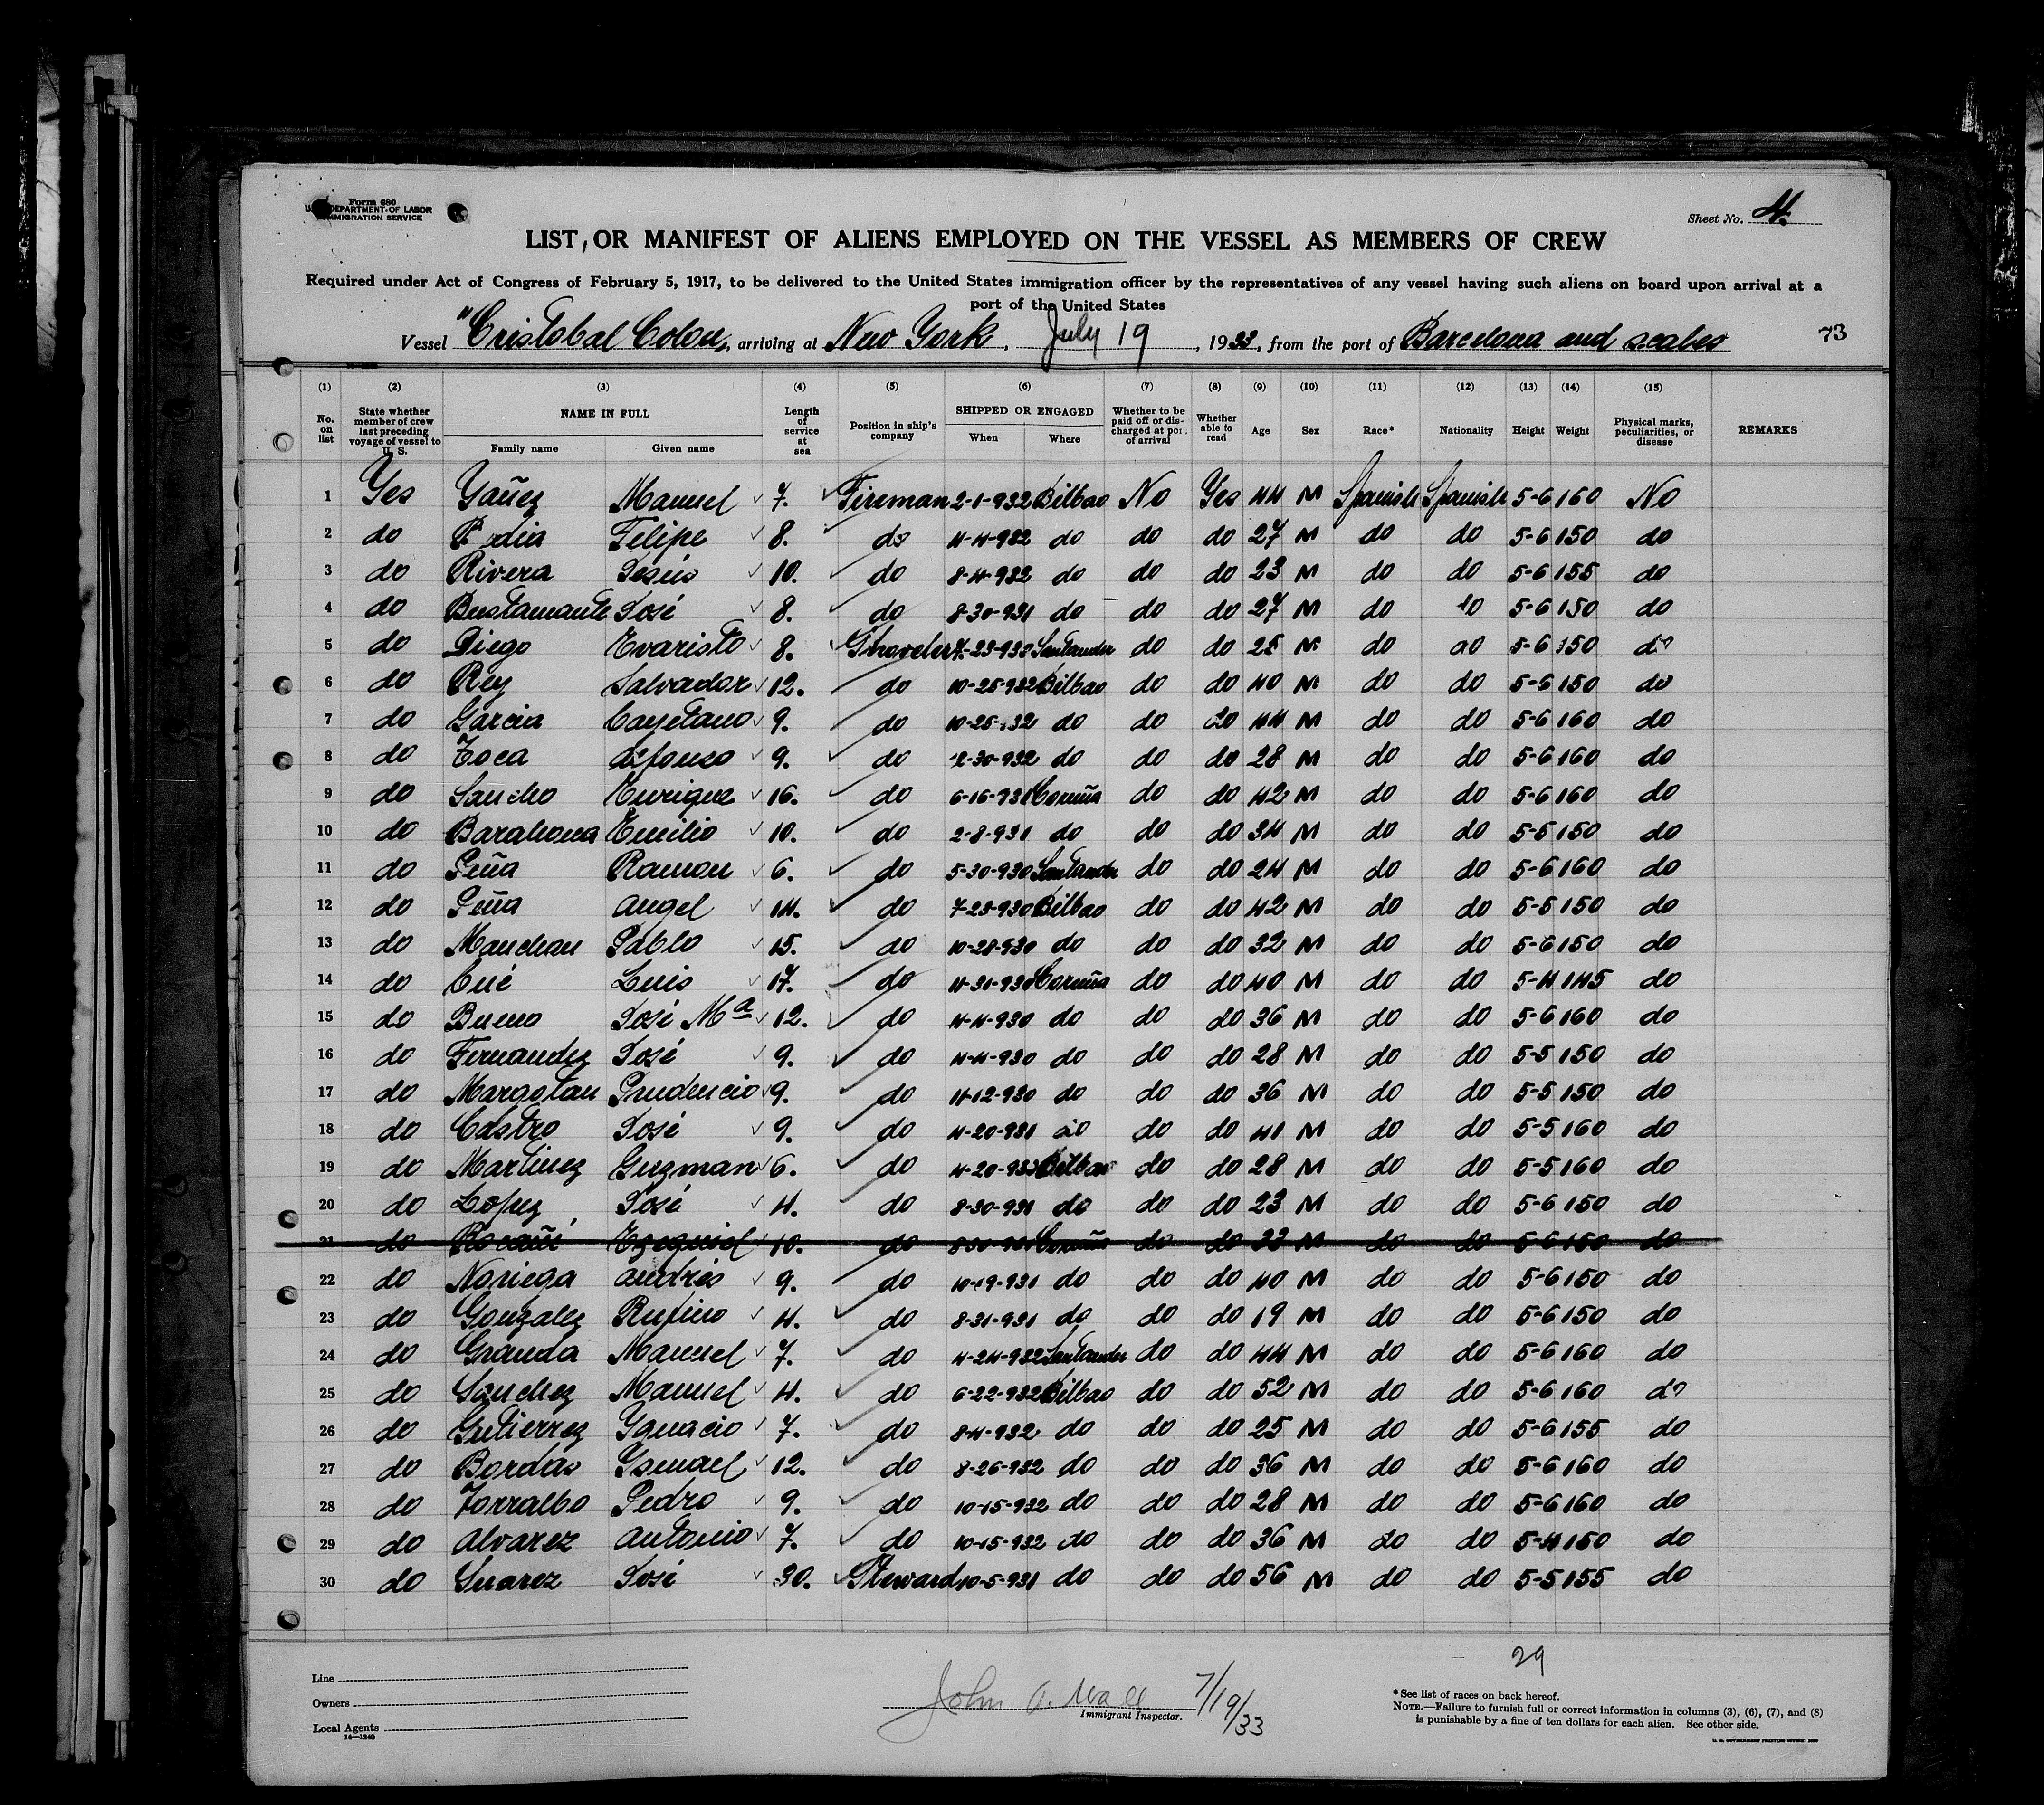 Form 680
U. S. DEPARTMENT OF LABOR
IMMIGRATION SERVICE
Sheet No. 4.
LIST, OR MANIFEST OF ALIENS EMPLOYED ON THE VESSEL AS MEMBERS OF CREW
Required under Act of Congress of February 5, 1917, to be delivered to the United States immigration officer by the representatives of any vessel having such aliens on board upon arrival at a
port of the United States
Vessel "Cristobal Colon", arriving at New York, July 19, 1933, from the port of Barcelona and scales 73
(1) (2) (3) (4) (5) (6) (7) (8) (9) (10) (11) (12) (13) (14) (15)
No. on list State whether member of crew last preceding voyage of vessel to U. S. NAME IN FULL Family name Given name Length of service at sea Position in ship's company SHIPPED OR ENGAGED When Where Whether to be paid off or discharged at port of arrival Whether able to read Age Sex Race* Nationality Height Weight Physical marks, peculiarities, or disease REMARKS
1 Yes Yañez Manuel 7. Fireman 2-1-932 Bilbao No Yes 44 M Spanish Spanish 5-6 160 No
2 do Filipe 8. do 4-4-932 do do do 27 M do do 5-6 150 do
3 do Rivera Jesús 10. do 8-4-932 do do do 23 M do do 5-6 155 do
4 do Bustamante José 8. do 8-30-931 do do do 27 M do do 5-6 150 do
5 do Diego Evaristo 8. Santander do do 25 M do do 5-6 150 do
6 do Rey Salvador 12. do 10-25-932 Bilbao do do 40 M do do 5-6 150 do
7 do Garcia Cayetano 9. do 10-25-932 do do do 44 M do do 5-6 160 do
8 do Toca Alfonso 9. do do do do 28 M do do 5-6 160 do
9 do Sancho Enrique 16. do 6-16-931 Coruña do do 42 M do do 5-6 160 do
10 do Barahona Emilio 10. do 2-8-931 do do do 34 M do do 5-5 150 do
11 do Peña Ramon 6. do 5-30-930 Santander do do 24 M do do 5-6 160 do
12 do Peña Angel 14. do 7-25-930 Bilbao do do 42 M do do 5-5 150 do
13 do Manchan Pablo 15. do 10-28-930 do do do 32 M do do 5-6 150 do
14 do Cué Luis 17. do Coruña do do 40 M do do 5-4 145 do
15 do Bueno José Mª 12. do 4-4-930 do do do 36 M do do 5-6 160 do
16 do Fernandez José 9. do 4-4-930 do do do 28 M do do 5-5 150 do
17 do Margolan Prudencio 9. do 11-12-930 do do do 36 M do do 5-5 150 do
18 do Castro José 9. do 4-20-931 do do do 41 M do do 5-5 160 do
19 do Martinez Guzman 6. do Bilbao do do 28 M do do 5-5 160 do
20 do Lopez José 4. do 8-30-931 do do do 23 M do do 5-6 150 do
21 do Ezequiel 10. do Coruña do do M do do 5-6 150 do
22 do Noriega Andrés 9. do 10-19-931 do do do 40 M do do 5-6 150 do
23 do Gonzalez Rufino 4. do 8-31-931 do do do 19 M do do 5-6 150 do
24 do Granda Manuel 7. do 4-24-932 Santander do do 44 M do do 5-6 160 do
25 do Sanchez Manuel 4. do 6-22-932 Bilbao do do 52 M do do 5-6 160 do
26 do Gutierrez Ygnacio 7. do 8-4-932 do do do 25 M do do 5-6 155 do
27 do Bordas Ysmael 12. do 8-26-932 do do do 36 M do do 5-6 160 do
28 do Torralbo Pedro 9. do 10-15-932 do do do 28 M do do 5-6 160 do
29 do Alvarez Antonio 7. do 10-15-932 do do do 36 M do do 5-4 150 do
30 do Suarez José 30. Steward 10-5-931 do do do 56 M do do 5-5 155 do
29
Line
Owners
Local Agents
14—1240
John A. Wall 7/19/33
Immigrant Inspector.
*See list of races on back hereof.
NOTE.—Failure to furnish full or correct information in columns (3), (6), (7), and (8)
is punishable by a fine of ten dollars for each alien. See other side.